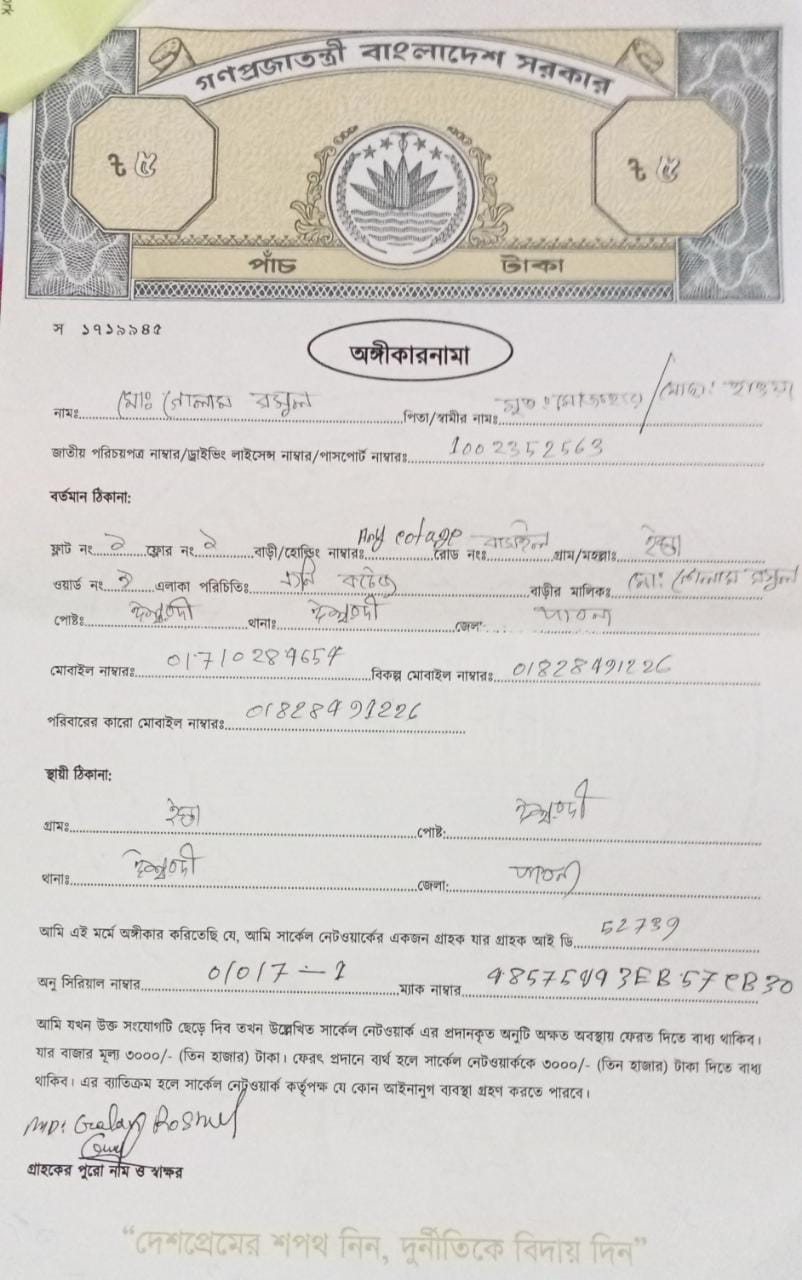 গণপ্রজাতন্ত্রী বাংলাদেশ সরকার
৳ ৫ ৳ ৫
পাঁচ টাকা
স ১৭১৯৯৪৫
অঙ্গীকারনামা
নামঃ মোঃ গোলাম রসুল পিতা/স্বামীর নামঃ মৃত
জাতীয় পরিচয়পত্র নাম্বার/ড্রাইভিং লাইসেন্স নাম্বার/পাসপোর্ট নাম্বারঃ 1002352563
বর্তমান ঠিকানা:
ফ্লাট নং ২ ফ্লোর নং ২ বাড়ী/হোল্ডিং নাম্বারঃ Any cotage রোড নংঃ গ্রাম/মহল্লাঃ
ওয়ার্ড নং এলাকা পরিচিতিঃ বাড়ীর মালিকঃ মোঃ গোলাম রসুল
পোষ্টঃ ঈশ্বরদী থানাঃ ঈশ্বরদী জেলা: পাবনা
মোবাইল নাম্বারঃ বিকল্প মোবাইল নাম্বারঃ 01828491226
পরিবারের কারো মোবাইল নাম্বারঃ 01828491226
স্থায়ী ঠিকানা:
গ্রামঃ পোষ্ট: ঈশ্বরদী
থানাঃ ঈশ্বরদী জেলা: পাবনা
আমি এই মর্মে অঙ্গীকার করিতেছি যে, আমি সার্কেল নেটওয়ার্কের একজন গ্রাহক যার গ্রাহক আই ডি 52739
অনু সিরিয়াল নাম্বার ম্যাক নাম্বার
আমি যখন উক্ত সংযোগটি ছেড়ে দিব তখন উল্লেখিত সার্কেল নেটওয়ার্ক এর প্রদানকৃত অনুটি অক্ষত অবস্থায় ফেরত দিতে বাধ্য থাকিব।
যার বাজার মূল্য ৩০০০/- (তিন হাজার) টাকা। ফেরৎ প্রদানে ব্যর্থ হলে সার্কেল নেটওয়ার্ককে ৩০০০/- (তিন হাজার) টাকা দিতে বাধ্য
থাকিব। এর ব্যতিক্রম হলে সার্কেল নেটওয়ার্ক কর্তৃপক্ষ যে কোন আইনানুগ ব্যবস্থা গ্রহণ করতে পারবে।
MD: Golam Rosul
গ্রাহকের পুরো নাম ও স্বাক্ষর
“দেশপ্রেমের শপথ নিন, দুর্নীতিকে বিদায় দিন”